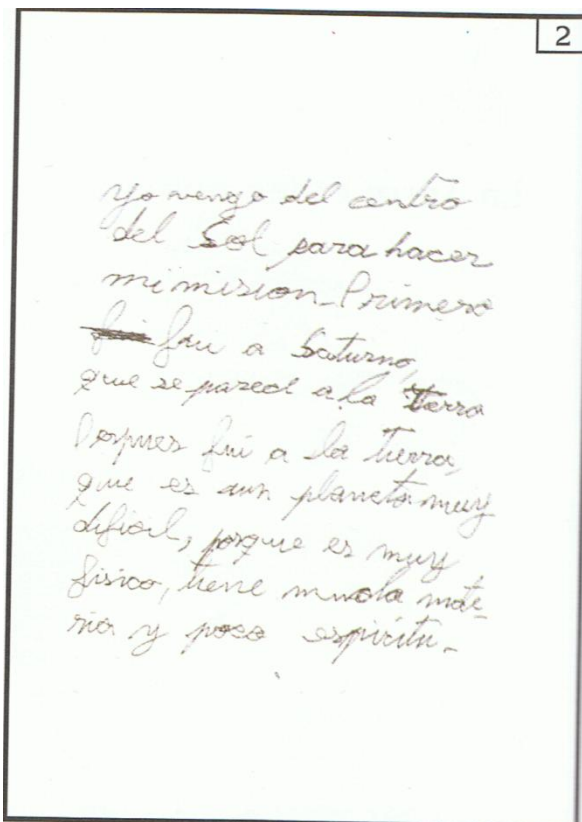 2
yo vengo del centro
del Sol para hacer
mi mision. Primero
fui a Saturno,
que se parece a la tierra
Despues fui a la tierra,
que es aun planeta muy
dificil, porque es muy
fisico, tiene mucha mate-
ria y poco espiritu.